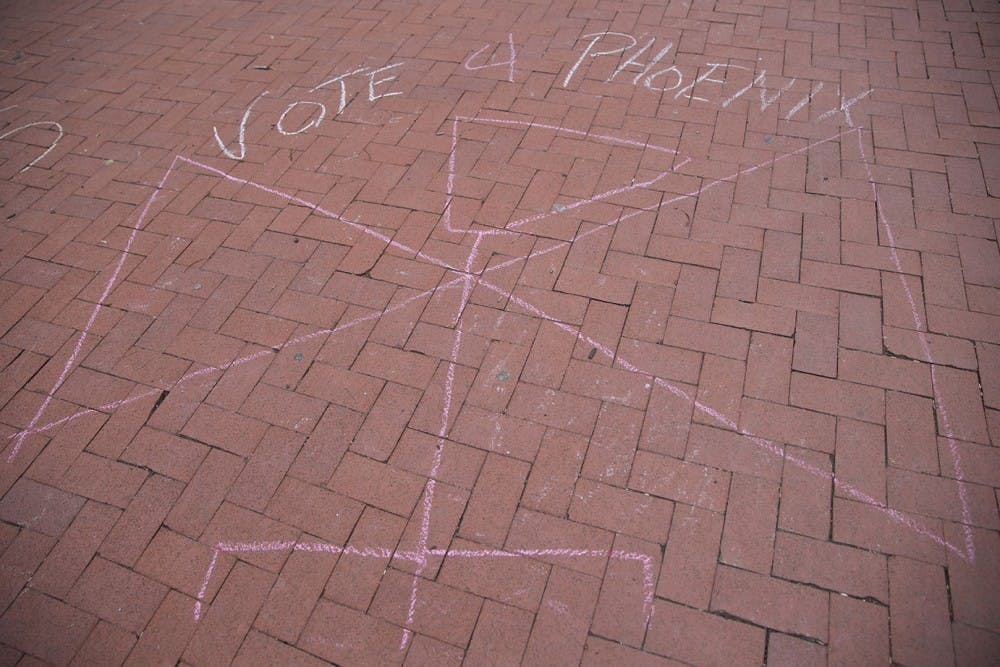 VOTE 4 PHOENIX